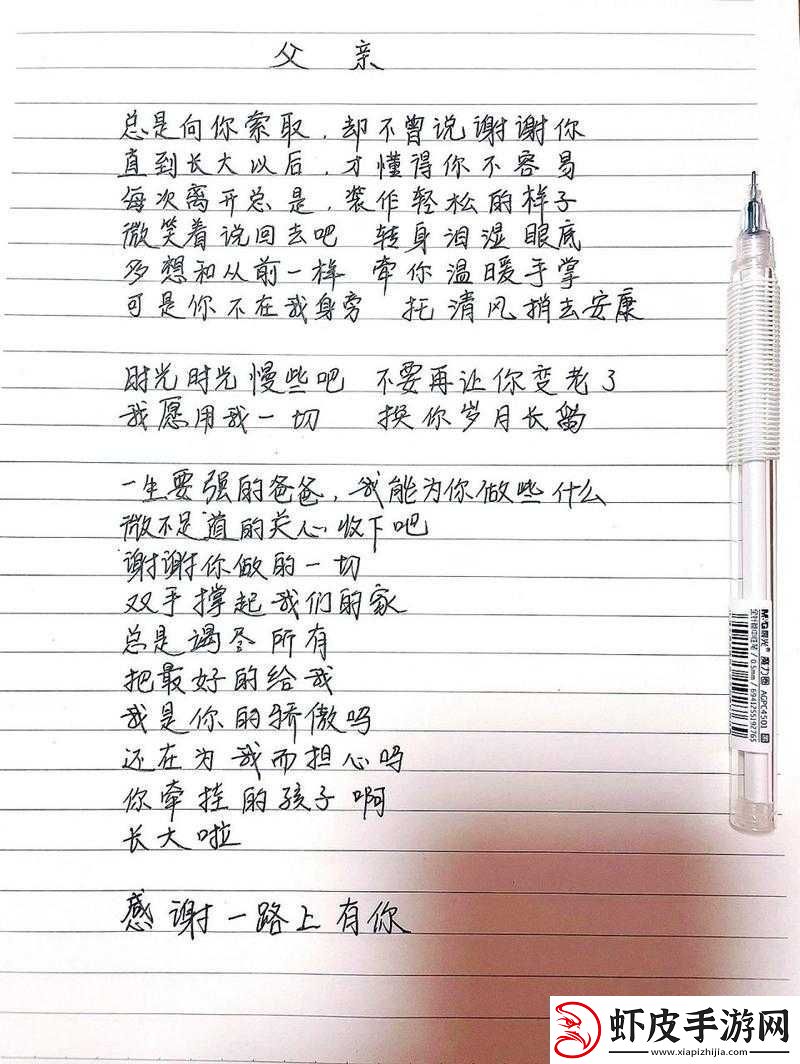 父亲
总是向你索取，却不曾说谢谢你
直到长大以后，才懂得你不容易
每次离开总是，装作轻松的样子
微笑着说回去吧 转身泪湿眼底
多想和从前一样 牵你温暖手掌
可是你不在我身旁 托清风捎去安康
时光时光慢些吧 不要再让你变老了
我愿用我一切 换你岁月长留
一生要强的爸爸，我能为你做些什么
微不足道的关心收下吧
谢谢你做的一切
双手撑起我们的家
总是竭尽所有
把最好的给我
我是你的骄傲吗
还在为我而担心吗
你牵挂的孩子啊
长大啦
感谢一路上有你
M&G晨光 魔力圈 AGPC4501
全针管中性笔/0.5mm/6941255192765
虾皮手游网
www.xiapizhijia.com